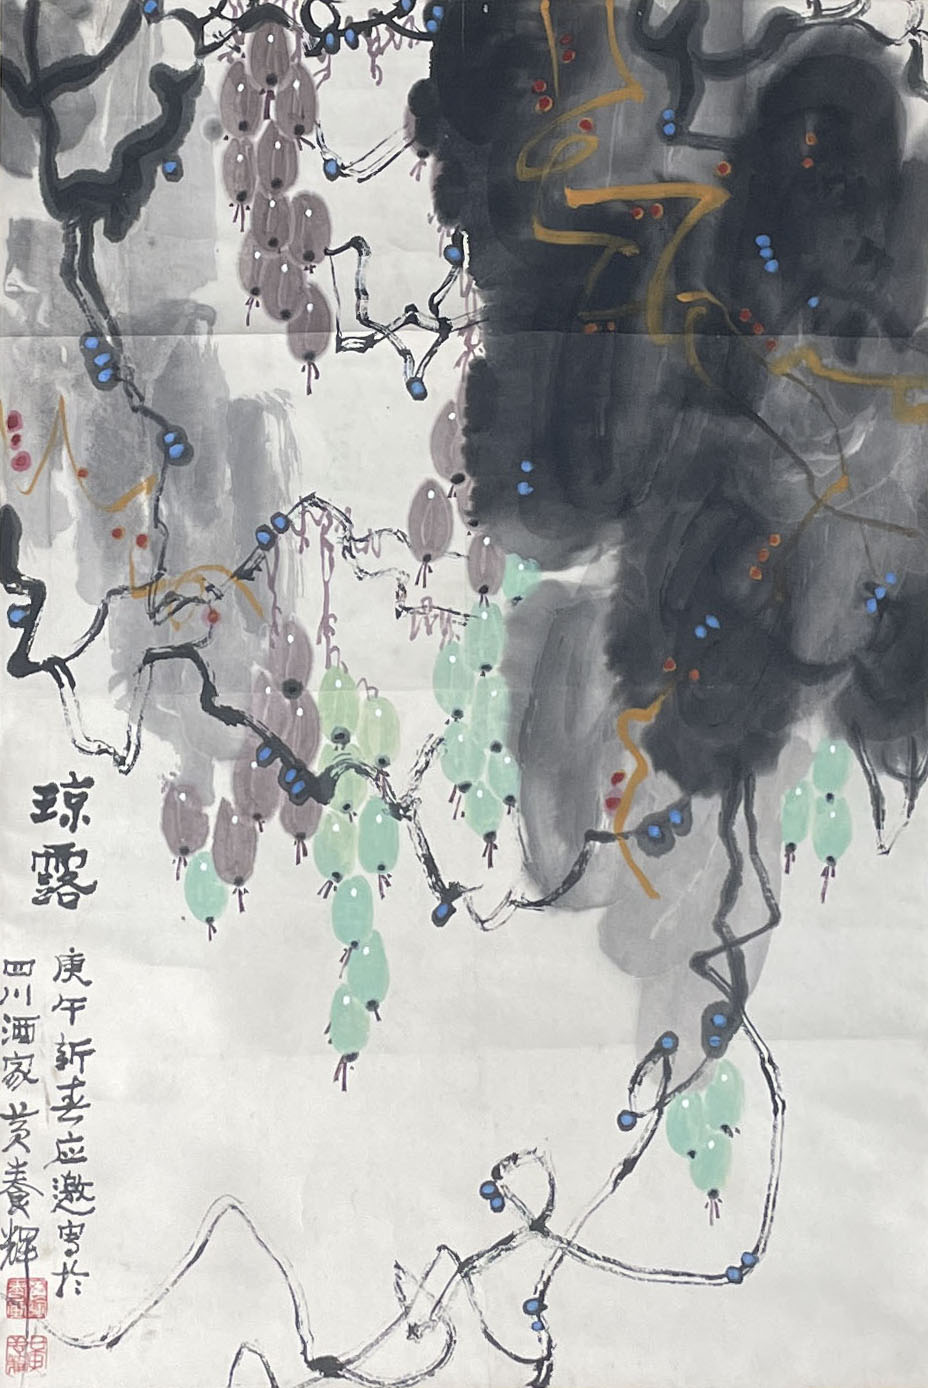 琼露
庚午新春应邀写于
四川酒家黄养辉